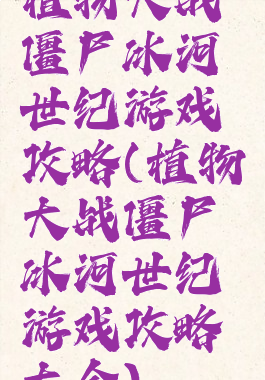 植物大战
僵尸冰河
世纪游戏
攻略(植物
大战僵尸
冰河世纪
游戏攻略
大全)